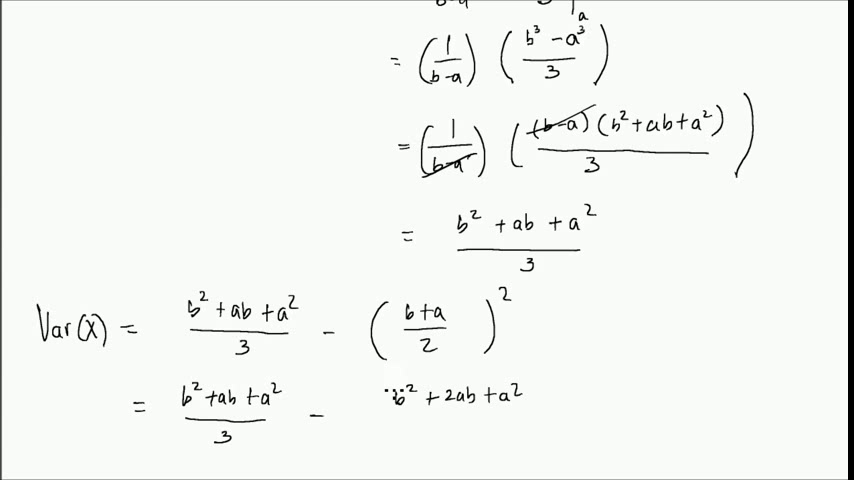 = (1/(b-a)) ((b³ - a³)/3)
= (1/(b-a)) ((b-a)(b² + ab + a²)/3)
= (b² + ab + a²)/3
Var(X) = (b² + ab + a²)/3 - ((b+a)/2)²
= (b² + ab + a²)/3 - b² + 2ab + a²